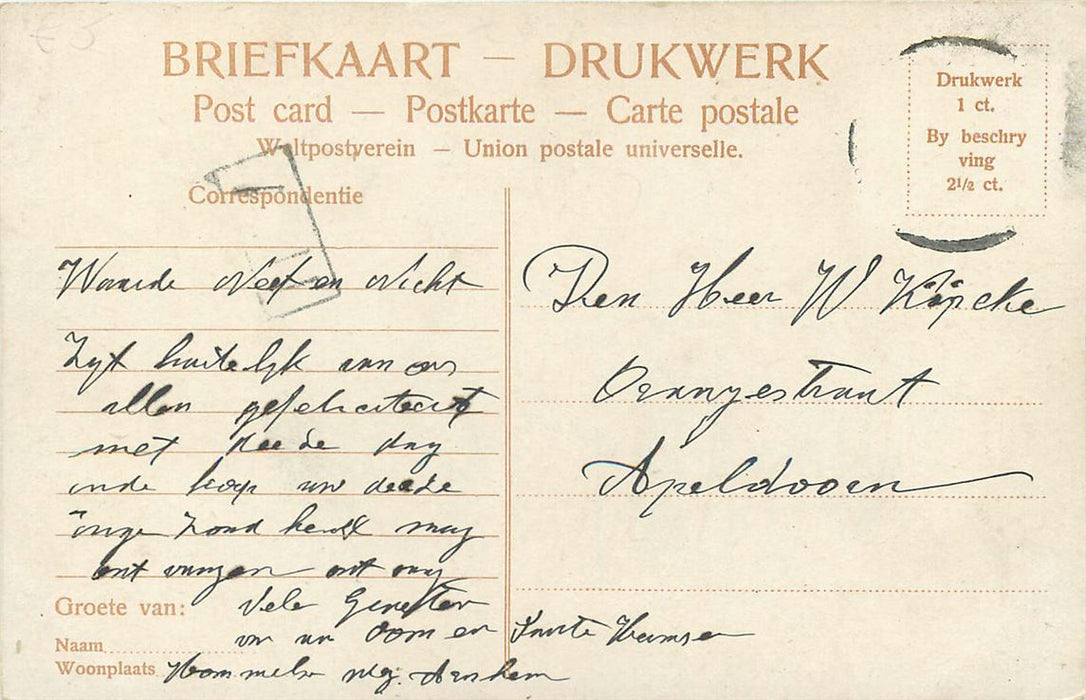 BRIEFKAART — DRUKWERK
Post card — Postkarte — Carte postale
Weltpostverein — Union postale universelle.
Drukwerk
1 ct.
By beschry
ving
2½ ct.
Correspondentie
Waarde Neef en Nicht
Zyt hartelyk van ons
allen gefeliciteert
met deede dag
ende hoop
mag
ont vangen
Groete van: Vele Groeten
van uw Oom en Tante
Naam
Woonplaats Hommelse weg Arnhem
Den Heer W Köpcke
Oranjestraat
Apeldoorn